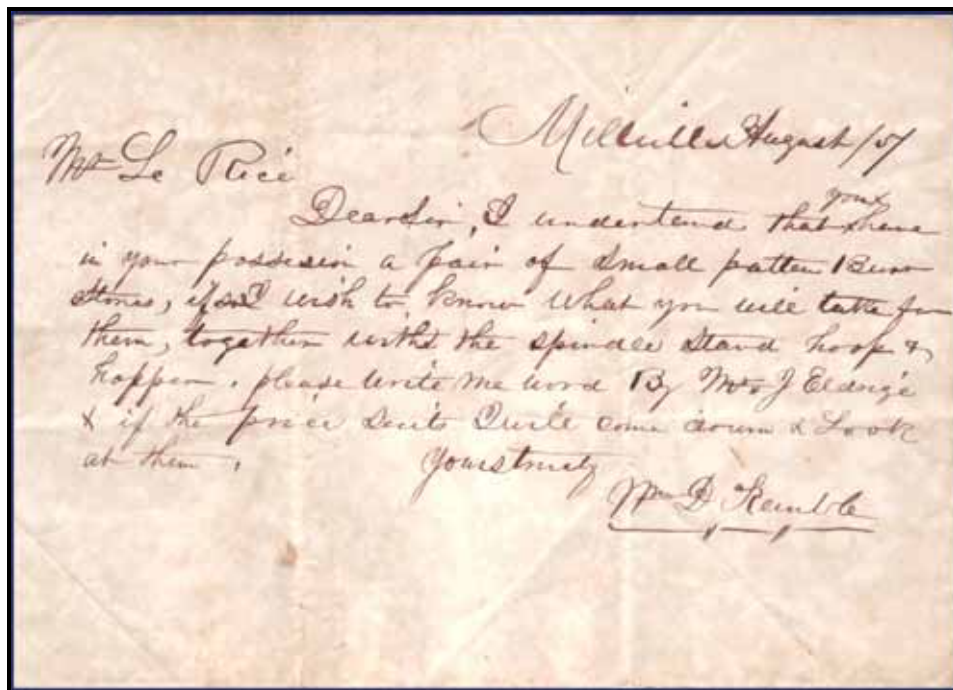 Millville August /57
Mr Le Rice
you
Dear Sir, I understand that have
in your possesion a pair of small patten Burr
Stones, if so I wish to know what you will take for
them, together with the spindle stand hoop &
hopper. please write me word By Mr J Eldrige
& if the price suits I will come down & Look
at them.
Yours truly
Wm D Kemble